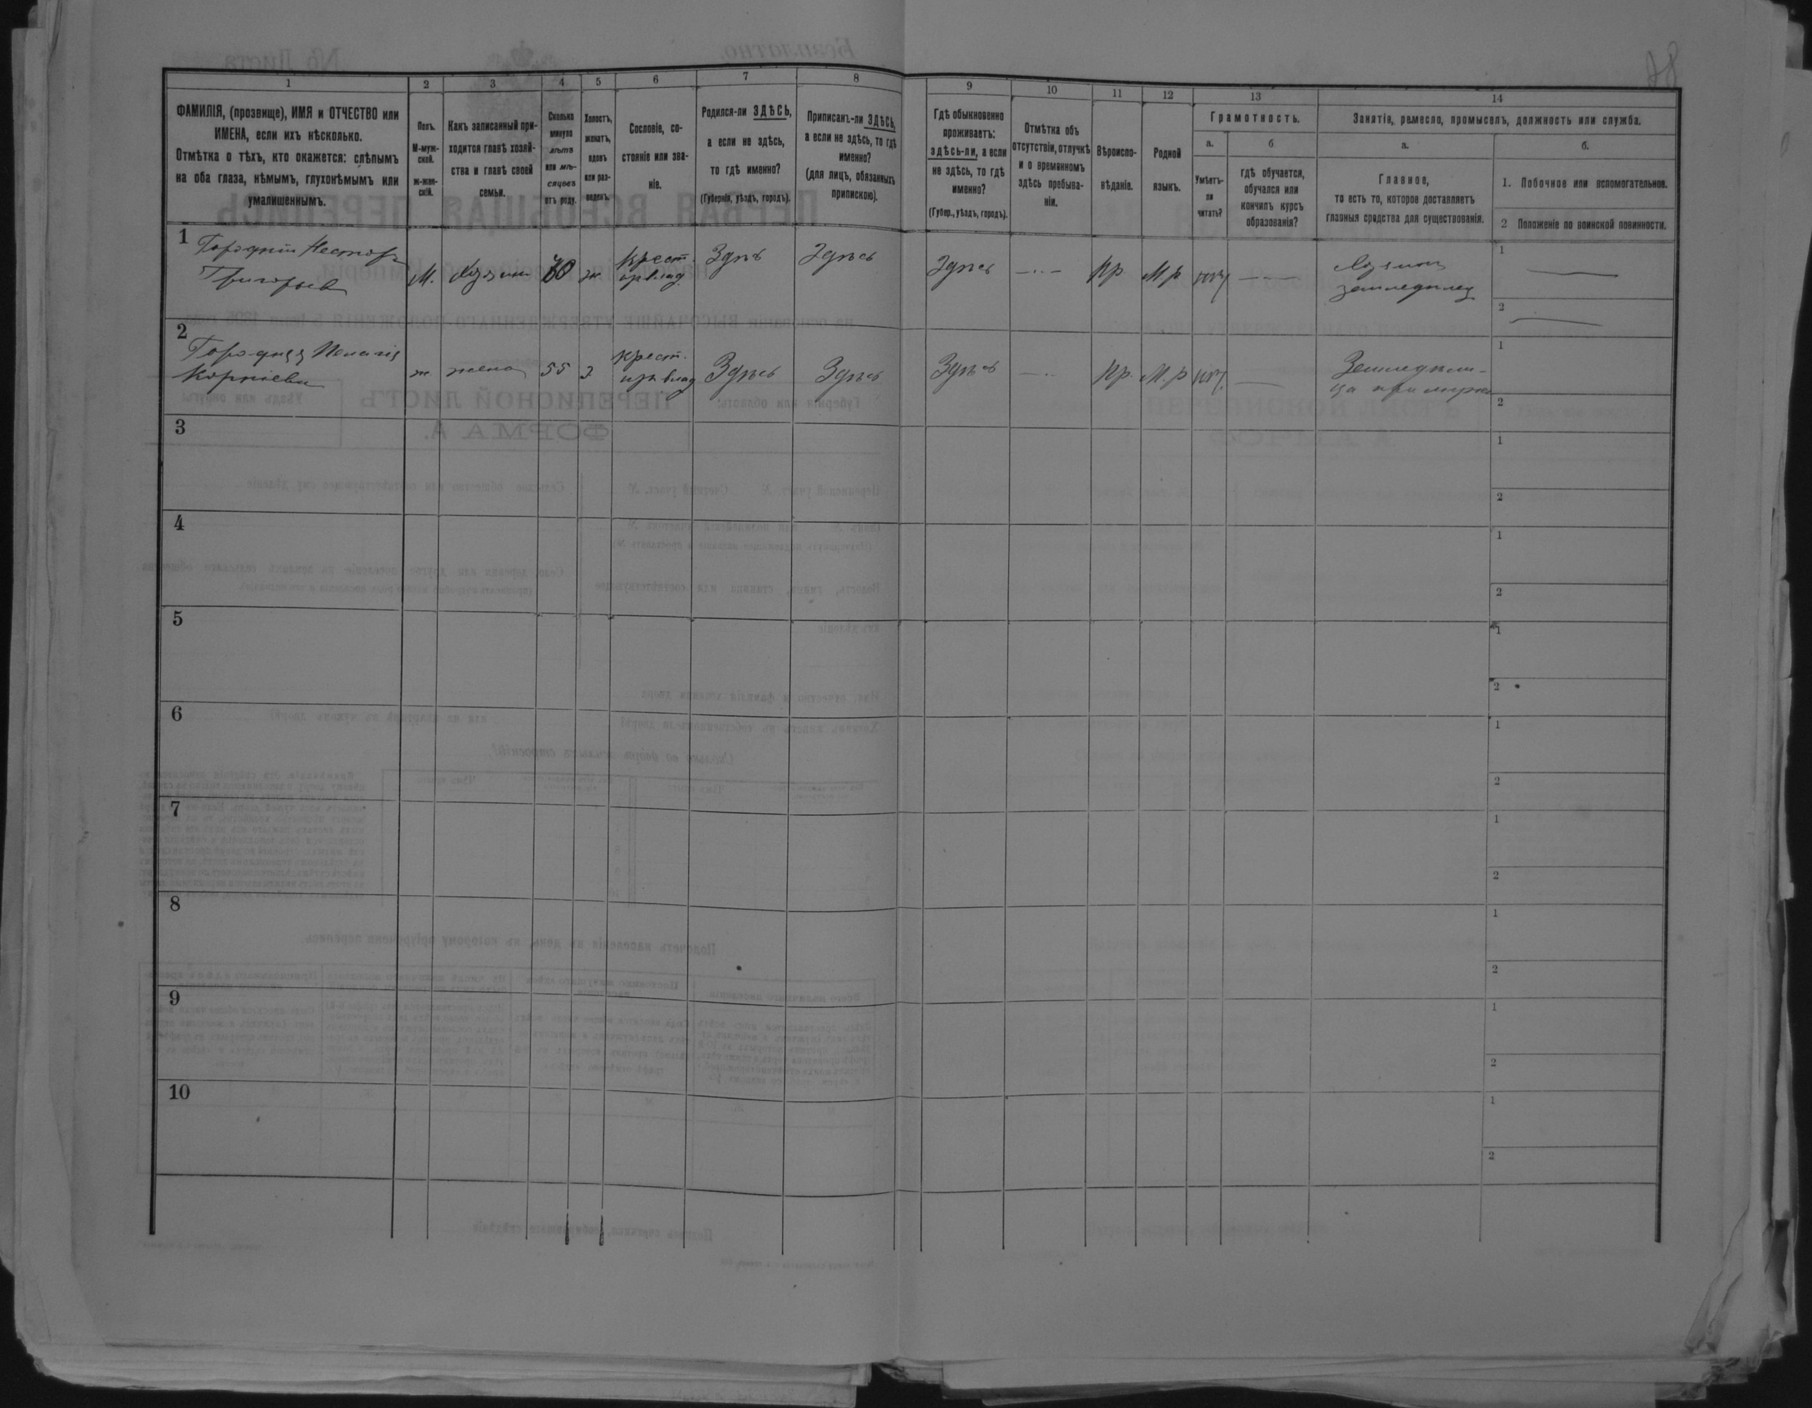 1 2 3 4 5 6 7 8 9 10 11 12 13 14
ФАМИЛІЯ, (прозвище), ИМЯ и ОТЧЕСТВО или
ИМЕНА, если ихъ нѣсколько.
Отмѣтка о тѣхъ, кто окажется: слѣпымъ
на оба глаза, нѣмымъ, глухонѣмымъ или
умалишеннымъ.
Полъ.
М-муж-
ской.
ж-жен-
скій.
Какъ записанный при-
ходится главѣ хозяй-
ства и главѣ своей
семьи.
Сколько
минуло
лѣтъ
или мѣ-
сяцевъ
отъ роду.
Холостъ,
женатъ,
вдовъ
или раз-
веденъ.
Сословіе, со-
стояніе или зва-
ніе.
Родился-ли ЗДѢСЬ,
а если не здѣсь,
то гдѣ именно?
(Губернія, уѣздъ, городъ).
Приписанъ-ли ЗДѢСЬ,
а если не здѣсь, то гдѣ
именно?
(для лицъ, обязанныхъ
припискою).
Гдѣ обыкновенно
проживаетъ:
здѣсь-ли, а если
не здѣсь, то гдѣ
именно?
(Губер., уѣздъ, городъ).
Отмѣтка объ
отсутствіи, отлучкѣ
и о временномъ
здѣсь пребыва-
ніи.
Вѣроиспо-
вѣданіе.
Родной
языкъ.
Грамотность.
а.
Умѣетъ-
ли
читать?
б
гдѣ обучается,
обучался или
кончилъ курсъ
образованія?
Занятія, ремесло, промыселъ, должность или служба.
а.
Главное,
то есть то, которое доставляетъ
главныя средства для существованія.
б.
1. Побочное или вспомогательное.
2 Положеніе по воинской повинности.
1
Городній Несторъ
Григорьев
М. хозяин 60 ж
крест.
Здѣсь Здѣсь Здѣсь Пр М.р
Хозяинъ
земледѣлец
1
2
2
Городняя Пелагія
Корніева
ж жена 55 з
крест.
Здѣсь Здѣсь Здѣсь Пр. М.р
1
2
3
1
2
4
1
2
5
1
2
6
1
2
7
1
2
8
1
2
9
1
2
10
1
2